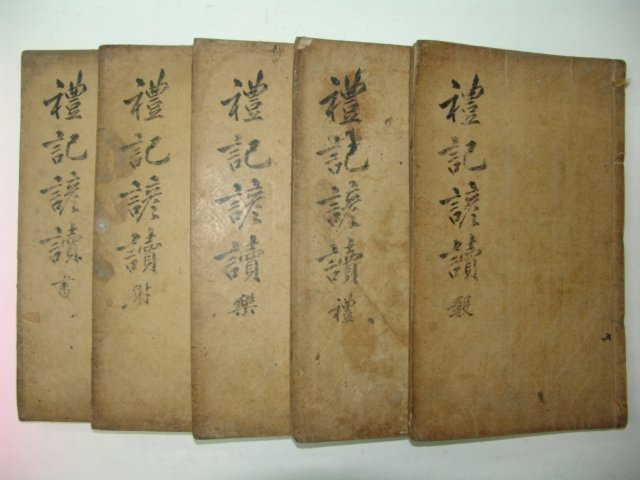 禮記諺讀 數
禮記諺讀 禮
禮記諺讀 樂
禮記諺讀 射
禮記諺讀 書